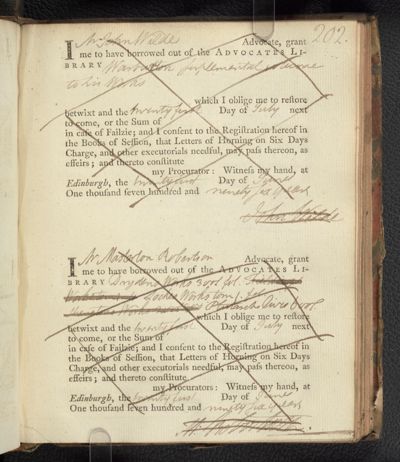 202.
I Mr John Wilde Advocate, grant
me to have borrowed out of the ADVOCATES LI-
BRARY Warburton Supplemental volume
to his Works
which I oblige me to reſtore
betwixt and the twenty first Day of July next
to come, or the Sum of
in caſe of Failzie; and I conſent to the Regiſtration hereof in
the Books of Seſſion, that Letters of Horning on Six Days
Charge, and other executorials needful, may paſs thereon, as
effeirs; and thereto conſtitute
my Procurator: Witneſs my hand, at
Edinburgh, the twenty first Day of June
One thouſand ſeven hundred and ninety six years
John Wilde
I Mr Robertson Advocate, grant
me to have borrowed out of the ADVOCATES LI-
BRARY Works 3 vol
Works
which I oblige me to reſtore
betwixt and the twenty first Day of July next
to come, or the Sum of
in caſe of Failzie; and I conſent to the Regiſtration hereof in
the Books of Seſſion, that Letters of Horning on Six Days
Charge, and other executorials needful, may paſs thereon, as
effeirs; and thereto conſtitute
my Procurators: Witneſs my hand, at
Edinburgh, the twenty first Day of June
One thouſand ſeven hundred and ninety six years